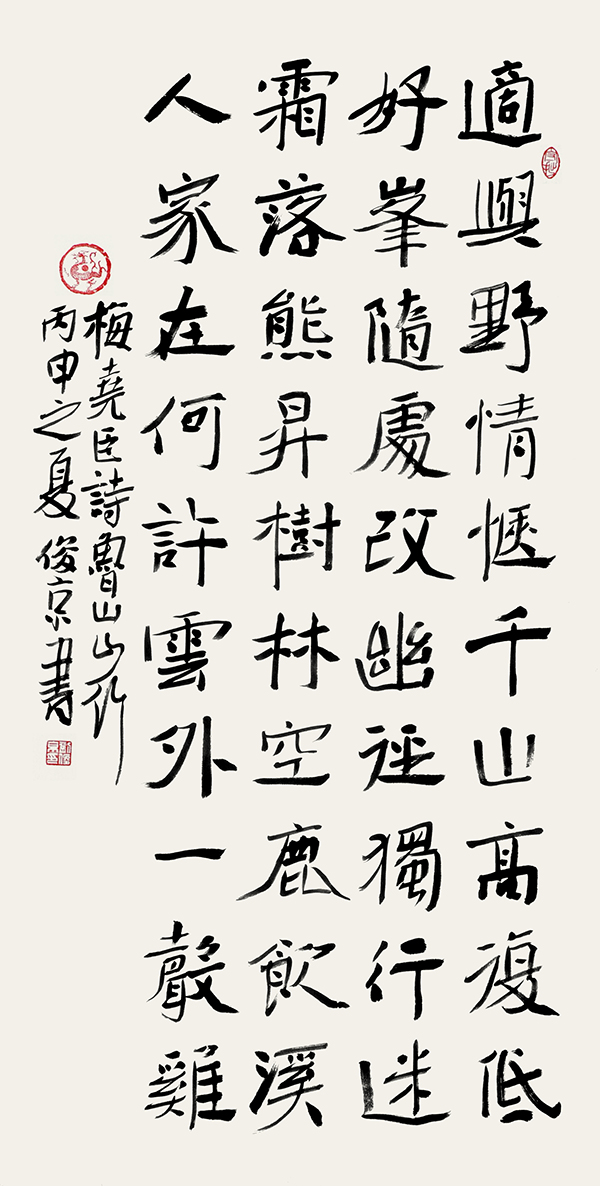 適與野情愜千山高復低
好峯隨處改幽徑獨行迷
霜落熊昇樹林空鹿飲溪
人家在何許雲外一聲雞
梅堯臣詩魯山山行
丙申之夏俊京書